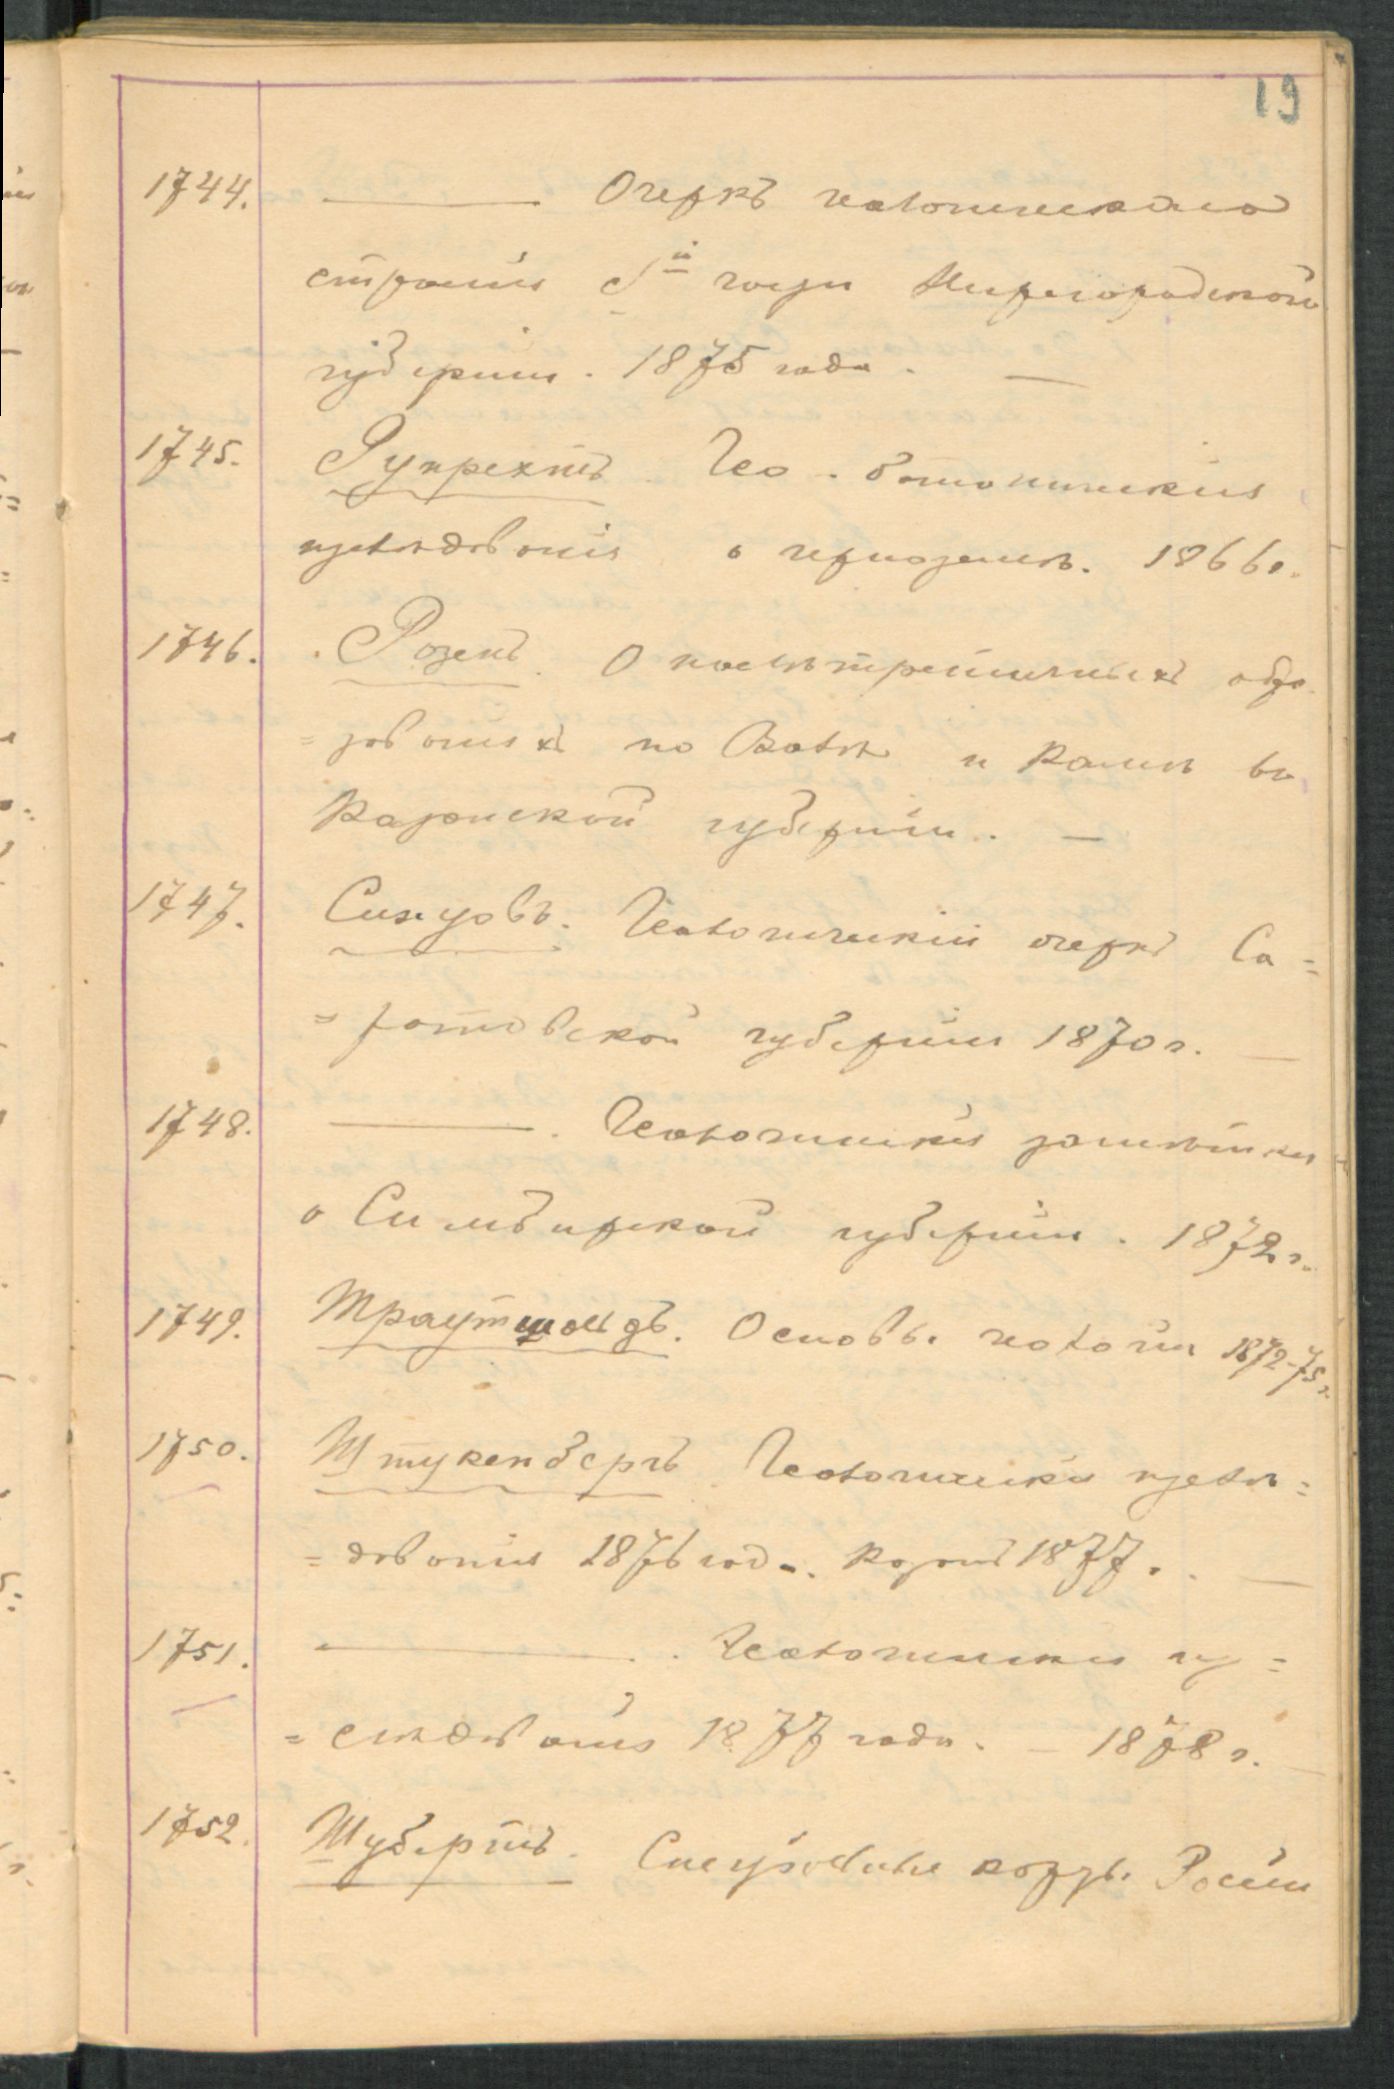 19
1744. ——— Очеркъ геологическаго
строенія С й части Нижегородской
губерніи. 1875 года. —
1745. Рупрехтъ. Гео-ботаническія
изслѣдованія о черноземѣ. 1866г.
1746. Розенъ. О послѣтретичныхъ обра-
=зованіяхъ по Волгѣ и Камѣ въ
Казанской губерніи. —
1747. Синцовъ. Геологическій очеркъ Са=
=ратовской губерніи 1870г. —
1748. ———. Геологическія замѣтки
о Симбирской губерніи. 1872г.
1749. Траутшольдъ. Основы геологіи 1872-75г.
1750. Штукенбергъ. Геологическія изслѣ=
=дованія 1876 года. Казань 1877. —
1751. ———. Геологическія из=
=слѣдованія 1877 года. — 1878г. —
1752. Шубертъ. Спеціальная карта Россіи